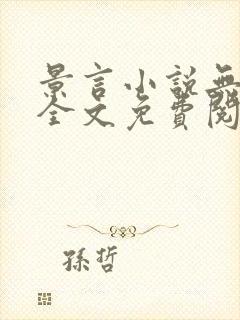 景言小說無
全文免費閱
孫哲